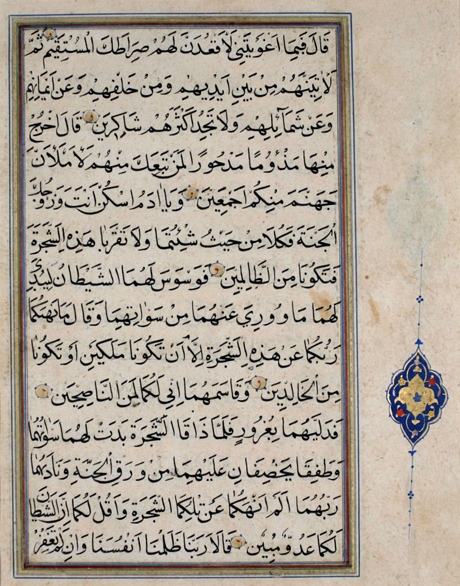 قَالَ فَبِمَا أَغْوَيْتَنِي لَأَقْعُدَنَّ لَهُمْ صِرَاطَكَ الْمُسْتَقِيمَ ثُمَّ
لَآتِيَنَّهُمْ مِنْ بَيْنِ أَيْدِيهِمْ وَمِنْ خَلْفِهِمْ وَعَنْ أَيْمَانِهِمْ
وَعَنْ شَمَائِلِهِمْ وَلَا تَجِدُ أَكْثَرَهُمْ شَاكِرِينَ قَالَ اخْرُجْ
مِنْهَا مَذْؤُمًا مَدْحُورًا لَمَنْ تَبِعَكَ مِنْهُمْ لَأَمْلَأَنَّ
جَهَنَّمَ مِنْكُمْ أَجْمَعِينَ وَيَا آدَمُ اسْكُنْ أَنْتَ وَزَوْجُكَ
الْجَنَّةَ فَكُلَا مِنْ حَيْثُ شِئْتُمَا وَلَا تَقْرَبَا هَذِهِ الشَّجَرَةَ
فَتَكُونَا مِنَ الظَّالِمِينَ فَوَسْوَسَ لَهُمَا الشَّيْطَانُ لِيُبْدِيَ
لَهُمَا مَا وُورِيَ عَنْهُمَا مِنْ سَوْآتِهِمَا وَقَالَ مَا نَهَاكُمَا
رَبُّكُمَا عَنْ هَذِهِ الشَّجَرَةِ إِلَّا أَنْ تَكُونَا مَلَكَيْنِ أَوْ تَكُونَا
مِنَ الْخَالِدِينَ وَقَاسَمَهُمَا إِنِّي لَكُمَا لَمِنَ النَّاصِحِينَ
فَدَلَّيهُمَا بِغُرُورٍ فَلَمَّا ذَاقَا الشَّجَرَةَ بَدَتْ لَهُمَا سَوْآتُهُمَا
وَطَفِقَا يَخْصِفَانِ عَلَيْهِمَا مِنْ وَرَقِ الْجَنَّةِ وَنَادَاهُمَا
رَبُّهُمَا أَلَمْ أَنْهَكُمَا عَنْ تِلْكُمَا الشَّجَرَةِ وَأَقُلْ لَكُمَا إِنَّ الشَّيْطَانَ
لَكُمَا عَدُوٌّ مُبِينٌ قَالَا رَبَّنَا ظَلَمْنَا أَنْفُسَنَا وَإِنْ لَمْ تَغْفِرْ